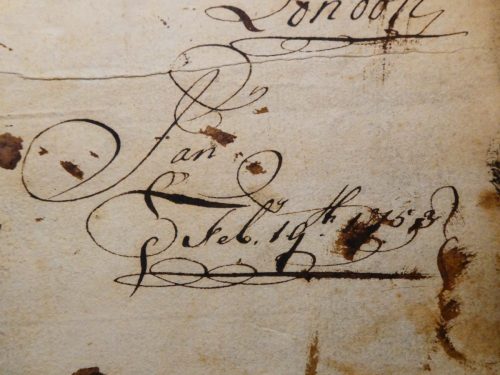 London
Jan
Feb.y 19th 1753